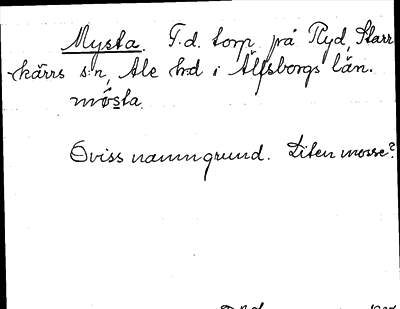 Mysta. F.d. torp på Ryd, Starr
kärrs s:n, Ale hd i Älfsborgs län.
mósta.
Oviss namngrund. Liten mosse?